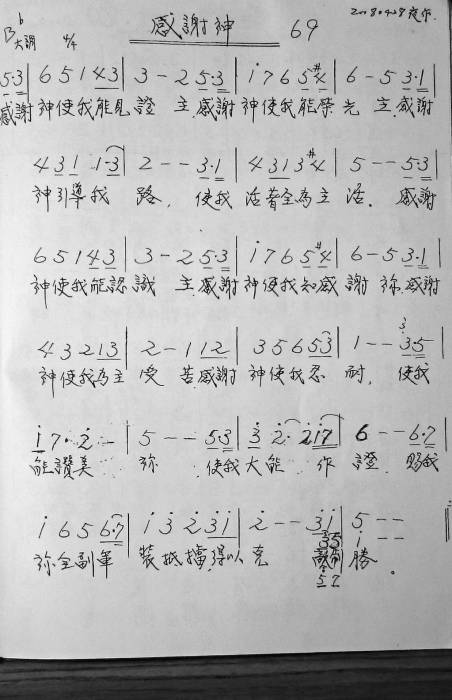 感謝神 69
B♭大調 4/4
5·3 | 6 5 1 4 3 | 3 - 2 5·3 | i 7 6 5 #4 | 6 - 5 3·1 |
感謝 神使我能見 證 主 感謝 神使我能榮 光 主 感謝
4 3 1 1·3 | 2 - - 3·1 | 4 3 1 3 #4 | 5 - - 5·3 |
神引導我 路, 使我 活著全為主 活. 感謝
6 5 1 4 3 | 3 - 2 5·3 | i 7 6 5 #4 | 6 - 5 3·1 |
神使我能認 識 主 感謝 神使我知感 謝 祢 感謝
4 3 2 1 3 | 2 - 1 1 2 | 3 5 6 5 3 | 1 - - 3·5 |
神使我為主 受 苦 感謝 神使我忍 耐, 使我
i 7· 2 - | 5 - - 5·3 | 3 2· 2 i 7 | 6 - - 6·7 |
能讚美 祢 使我 大能 作 證 賜我
i 6 5 6 6·7 | i 3 2 3 i | 2 - - 3 i | 5 - -
祢全副軍 裝抵擋 得以 克 勝。